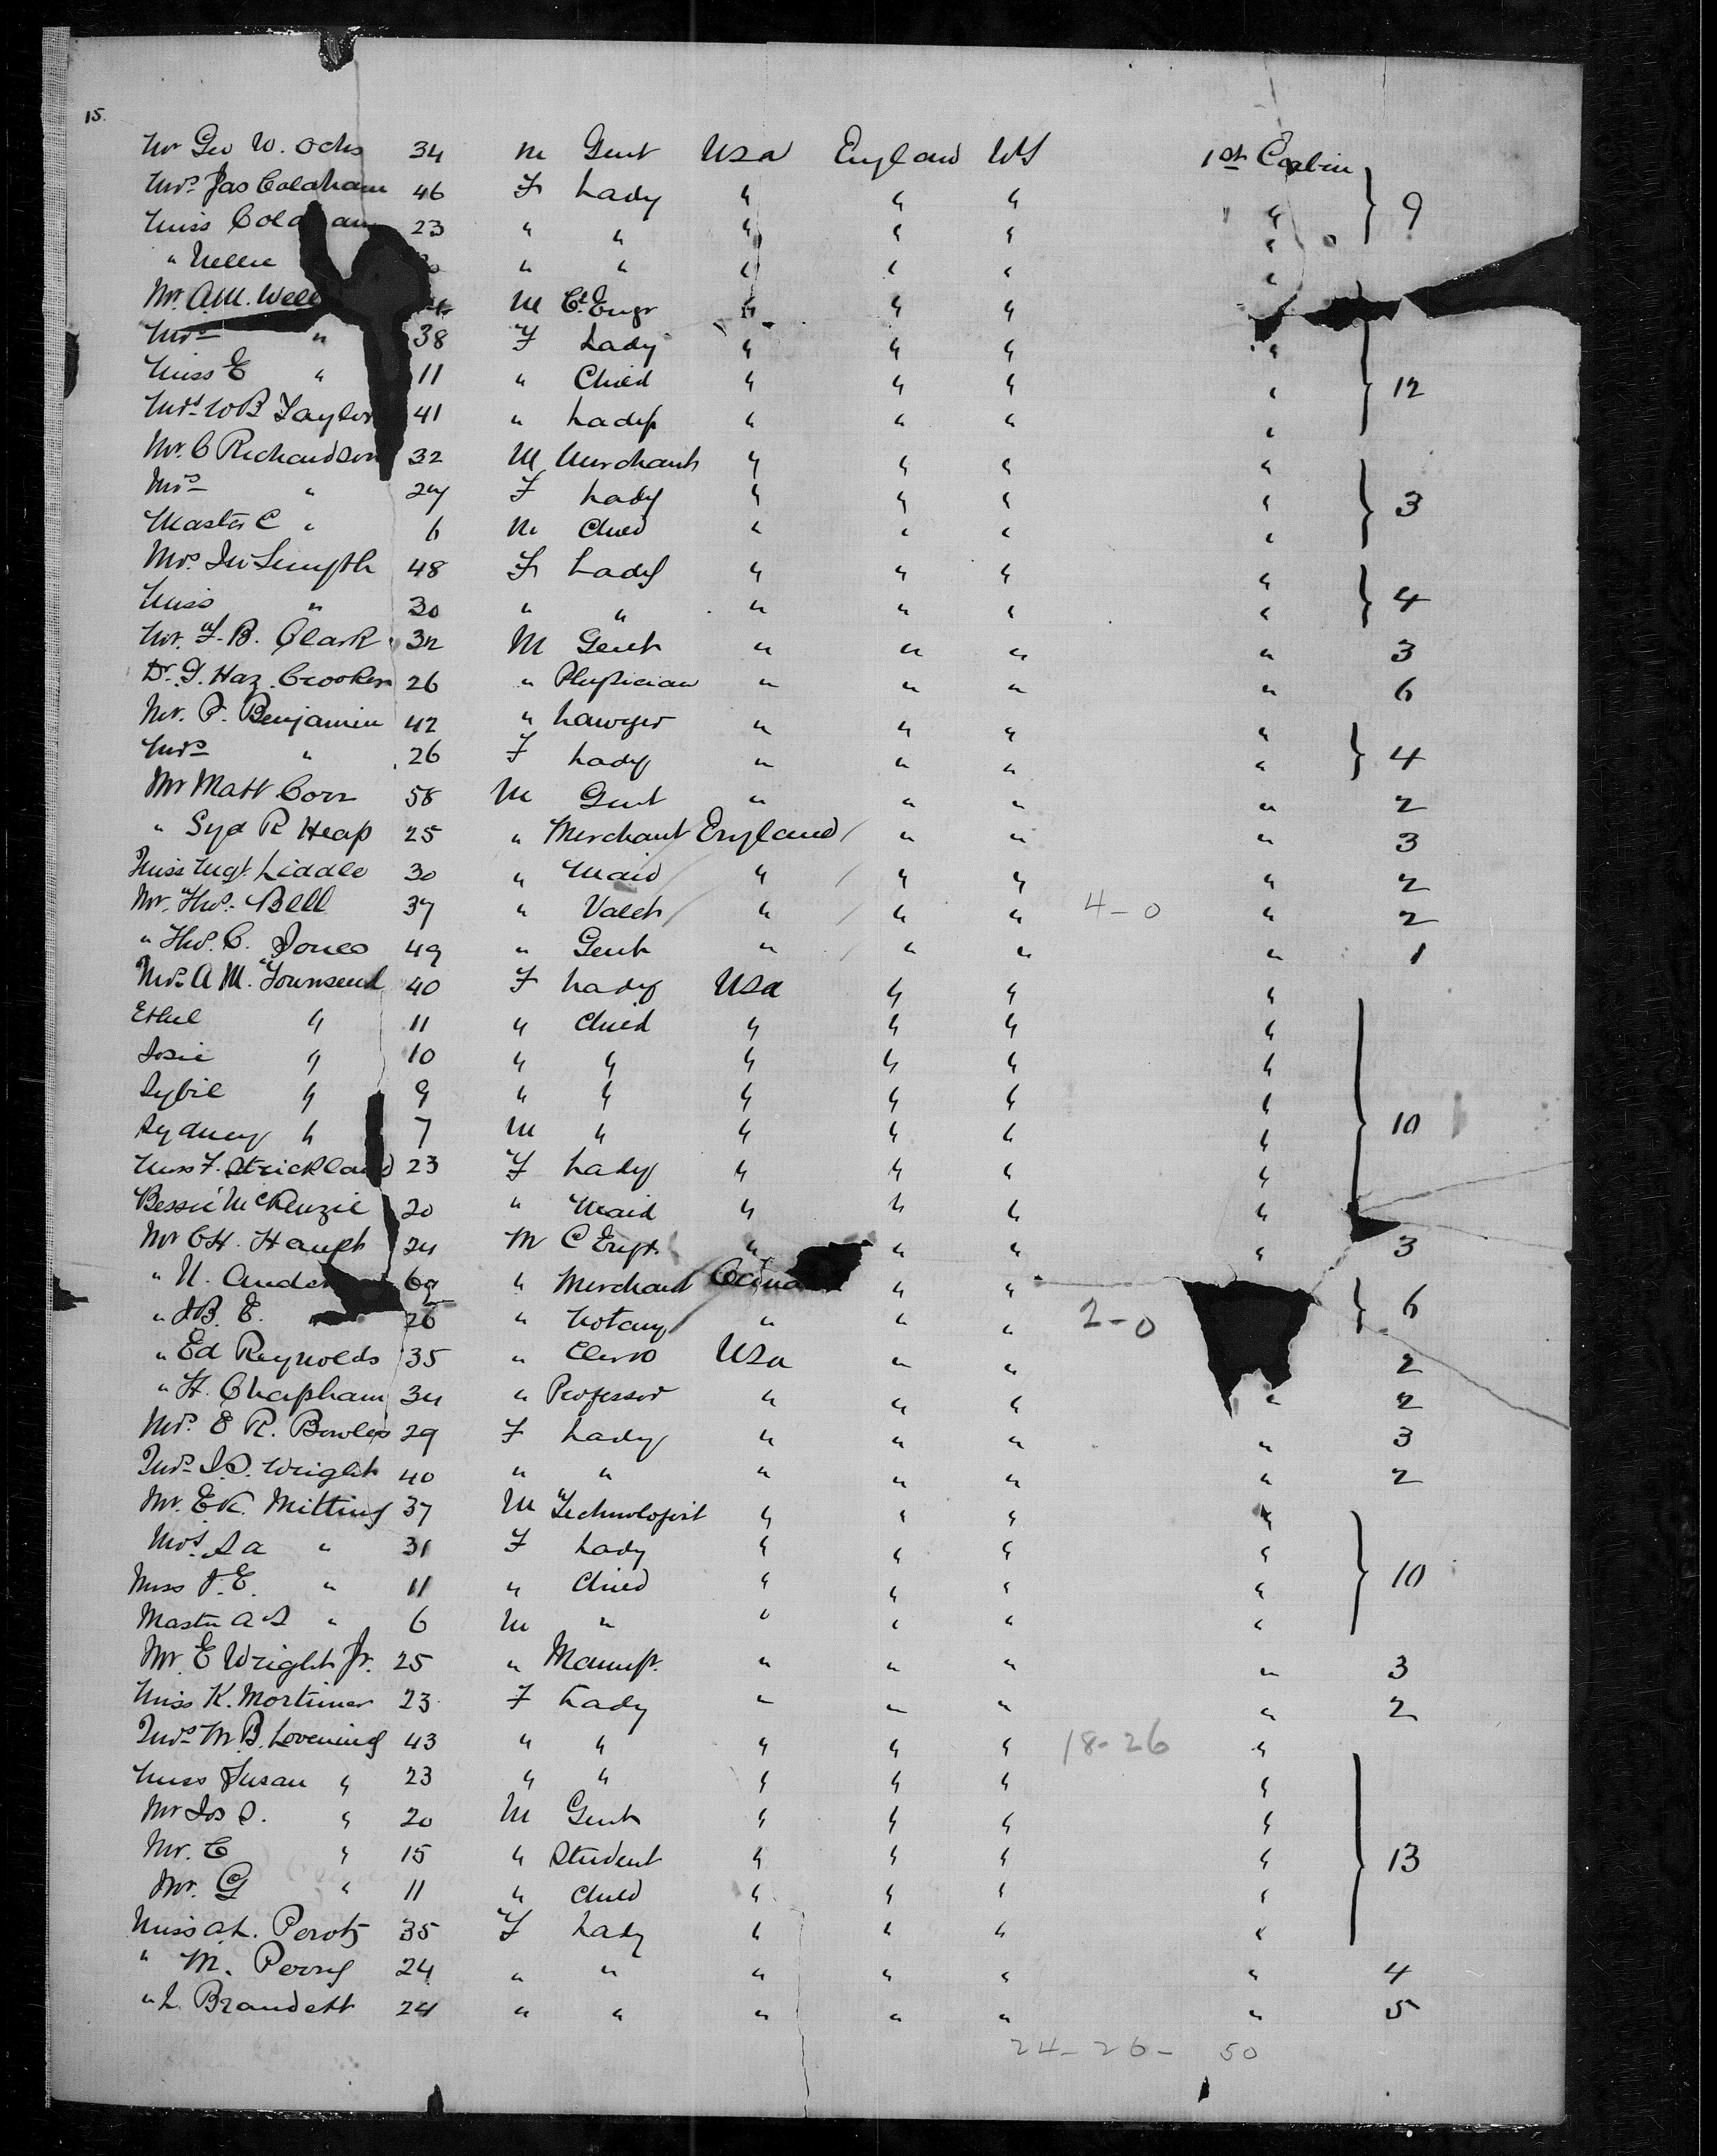 15.
Mr Geo W. Ochs 34 M Gent USA England US 1st Cabin
Mrs. Jas Coldham 46 F Lady " " " " 9
Miss Cold am 23 " " " " " "
" Nellie " " " " " "
Mr. A.M. Well M Engr " " " "
Mrs " 38 F Lady " " " " 12
Miss E " 11 " Child " " " "
Mrs W B Taylor 41 " Lady " " " "
Mr. C Richardson 32 M Merchant " " " "
Mrs " 27 F Lady " " " " 3
Master C " 6 M Child " " " "
Mrs. 48 F Lady " " " "
Miss " 30 " " " " " " 4
Mr. F. B. Clark 32 M Gent " " " " 3
Dr. G. Haz. Crooker 26 " Physician " " " " 6
Mr. P. Benjamin 42 " Lawyer " " " "
Mrs " 26 F Lady " " " " 4
Mr Matt Corr 58 M Gent " " " " 2
" Syd R Heap 25 " Merchant England " " " 3
Miss Mgt Liddle 30 " Maid " " " " 2
Mr. Thos. Bell 37 " Valet " " " 4-0 " 2
" Thos. C. Jones 49 " Gent " " " " 1
Mrs A M. Townsend 40 F Lady USA " " "
Ethel " 11 " Child " " " "
Josie " 10 " " " " " "
Sybil " 9 " " " " " "
Sydney " 7 M " " " " " 10
Miss F. Strickland 23 F Lady " " " "
Bessie McKenzie 20 " Maid " " " "
Mr C H. Haupt 24 M C Engr " " " " 3
" N. Ander 69 " Merchant " "
" J B. E. 26 " Notary " " " 2-0 6
" Ed Reynolds 35 " Clerk USA " " 2
" H. Chapham 34 " Professor " " " " 2
Mrs. E R. Bowles 29 F Lady " " " " 3
Mrs J. S. Wright 40 " " " " " " 2
Mr. E K. Mitting 37 M Technologist " " " "
Mrs. S a " 31 F Lady " " " "
Miss F. E. " 11 " Child " " " " 10
Master A S " 6 M " " " " "
Mr. E Wright Jr. 25 " Manufr. " " " " 3
Miss K. Mortimer 23 F Lady " " " " 2
Mrs M. B. Lovening 43 " " " " " 18-26 "
Miss Susan " 23 " " " " " "
Mr Jos S. " 20 M Gent " " " "
Mr. C " 15 " Student " " " " 13
Mr. G " 11 " Child " " " "
Miss A L. Perot 35 F Lady " " " "
" M. Perry 24 " " " " " " 4
" L. Brandett 24 " " " " " " 5
24-26- 50